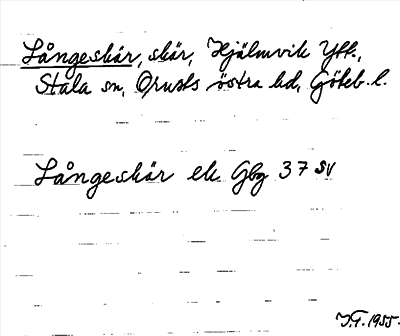 Långeskär, skär, Hjälmvik Ytt.,
Stala sn, Orusts östra hd, Göteb. l.
Långeskär ek Gbg 37 SV
J.F. 1955.